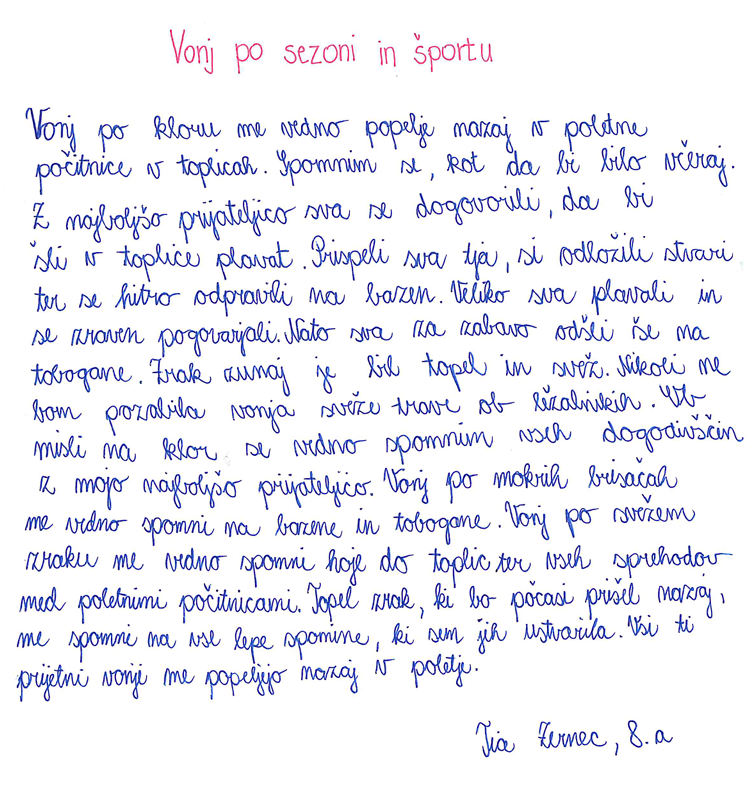 Vonj po sezoni in športu
Vonj po kloru me vedno popelje nazaj v poletne
počitnice v toplicah. Spomnim se, kot da bi bilo včeraj.
Z najboljšo prijateljico sva se dogovorili, da bi
šli v toplice plavat. Prispeli sva tja, si odložili stvari
ter se hitro odpravili na bazen. Veliko sva plavali in
se zraven pogovarjali. Nato sva za zabavo odšli še na
tobogane. Zrak zunaj je bil topel in svež. Nikoli ne
bom pozabila vonja sveže trave ob ležalnikih. Ob
misli na klor se vedno spomnim vseh dogodivščin
z mojo najboljšo prijateljico. Vonj po mokrih brisačah
me vedno spomni na bazene in tobogane. Vonj po svežem
zraku me vedno spomni hoje do toplic ter vseh sprehodov
med poletnimi počitnicami. Topel zrak, ki bo počasi prišel nazaj,
me spomni na vse lepe spomine, ki sem jih ustvarila. Vsi ti
prijetni vonji me popeljejo nazaj v poletje.
Tia Zernec, 8. a